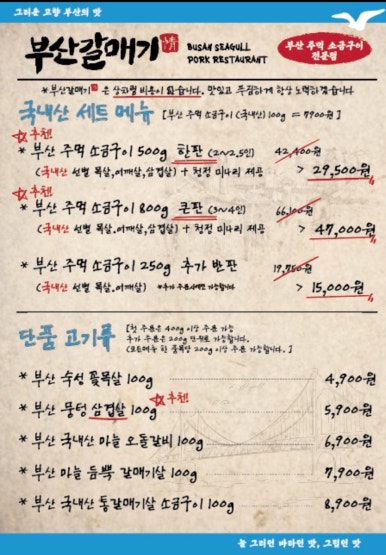 그리운 고향 부산의 맛
부산갈매기 情
BUSAN SEAGULL
PORK RESTAURANT
부산 주먹 소금구이
전문점
*부산갈매기 은 상차림 비용이 없습니다. 맛있고 푸짐하게 항상 노력하겠습니다
국내산 세트 메뉴 [부산 주먹 소금구이 (국내산) 100g = 7900원]
추천!
* 부산 주먹 소금구이 500g 한판 (2~2.5인) 42,400원
(국내산 선별 목살,어깨살,삼겹살) + 청정 미나리 제공 > 29,500원
추천!
* 부산 주먹 소금구이 800g 큰판 (3~4인) 66,100원
(국내산 선별 목살,어깨살,삼겹살) + 청정 미나리 제공 > 47,000원
* 부산 주먹 소금구이 250g 추가 반판 19,750원
(국내산 선별 목살,어깨살) *추가 주문시에만 가능합니다 > 15,000원
단품 고기류
[첫 주문은 400g 이상 주문 가능
추가 주문은 200g 단위로 가능합니다.
(모든메뉴 한 품목당 200g 이상 주문 가능합니다.]
* 부산 숙성 꽃목살 100g 4,900원
추천!
* 부산 뭉텅 삼겹살 100g 5,900원
* 부산 국내산 마늘 오돌갈비 100g 6,900원
* 부산 마늘 듬뿍 갈매기살 100g 7,900원
* 부산 국내산 통갈매기살 소금구이 100g 8,900원
늘 그리던 바다인 맛, 그립던 맛